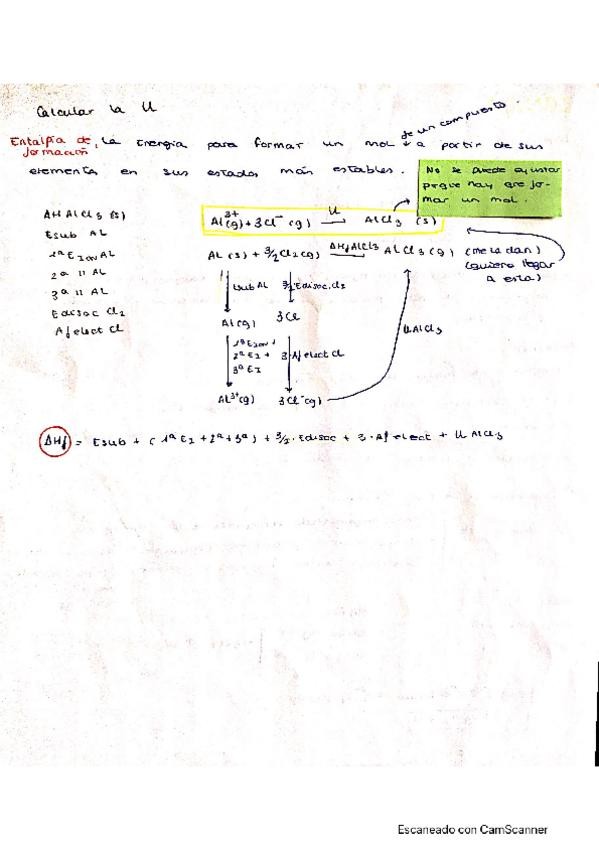 Calcular la U
Entalpía de formación, La Energía para formar un mol de un compuesto a partir de sus
elementos en sus estados más estables.
No se puede ajustar
porque hay que for-
mar un mol.
ΔH AlCl3 (s)
Esub AL
1ª E ion AL
2ª 11 AL
3ª 11 AL
Edisoc Cl2
Afelect Cl
Al3+(g) + 3Cl- (g) U→ AlCl3 (s)
AL (s) + 3/2 Cl2 (g) ΔHf AlCl3→ AlCl3 (g) (me la dan)
(quiero llegar
a esta)
Esub AL 3/2 Edisoc. Cl2
Al(g) 3Cl
U AlCl3
1ª E ion + 3·Afelect Cl
2ª EI +
3ª EI
Al3+(g) 3Cl-(g)
ΔHf = Esub + (1ª EI + 2ª + 3ª) + 3/2 · Edisoc + 3 · Afelect + U AlCl3
Escaneado con CamScanner